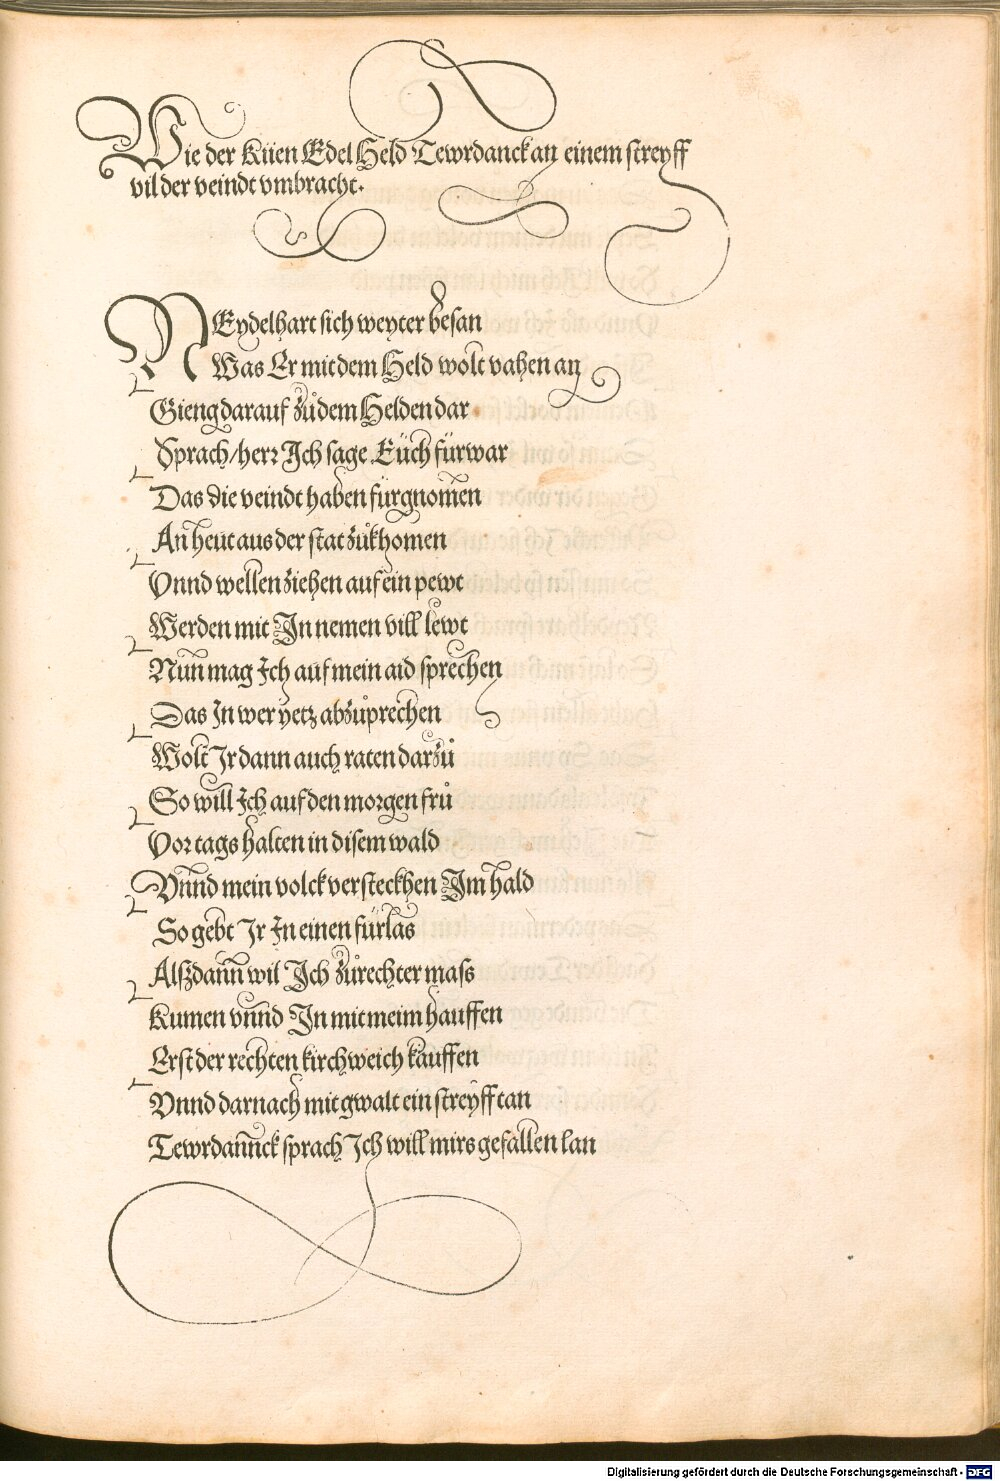 Wie der Küen Edel Held Tewrdanck an einem streyff
vil der veindt vmbracht.
NEydelhart sich weyter besan
Was Er mit dem Held wolt vahen an
Gieng darauf zů dem Helden dar
Sprach/herr Ich sage Eüch fürwar
Das die veindt haben fürgnomen̄
An̄ heut aus der stat zůkhomen
Vnnd wellen ziehen auf ein pewt
Werden mit In nemen vill lewt
Nun̄ mag Ich auf mein aid sprechen
Das In wer yetz abzůprechen
Wolt Ir dann auch raten darzů
So will Ich auf den morgen frů
Vor tags halten in disem wald
Vnnd mein volck versteckhen Im hald
So gebt Ir In einen fürlas
Alßdann̄ wil Ich zůrechter mass
Kumen vnnd In mit meim hauffen
Erst der rechten kirchweich kauffen
Vnnd darnach mit gwalt ein streyff tan
Tewrdannck sprach Ich will mirs gefallen lan
Digitalisierung gefördert durch die Deutsche Forschungsgemeinschaft - DFG